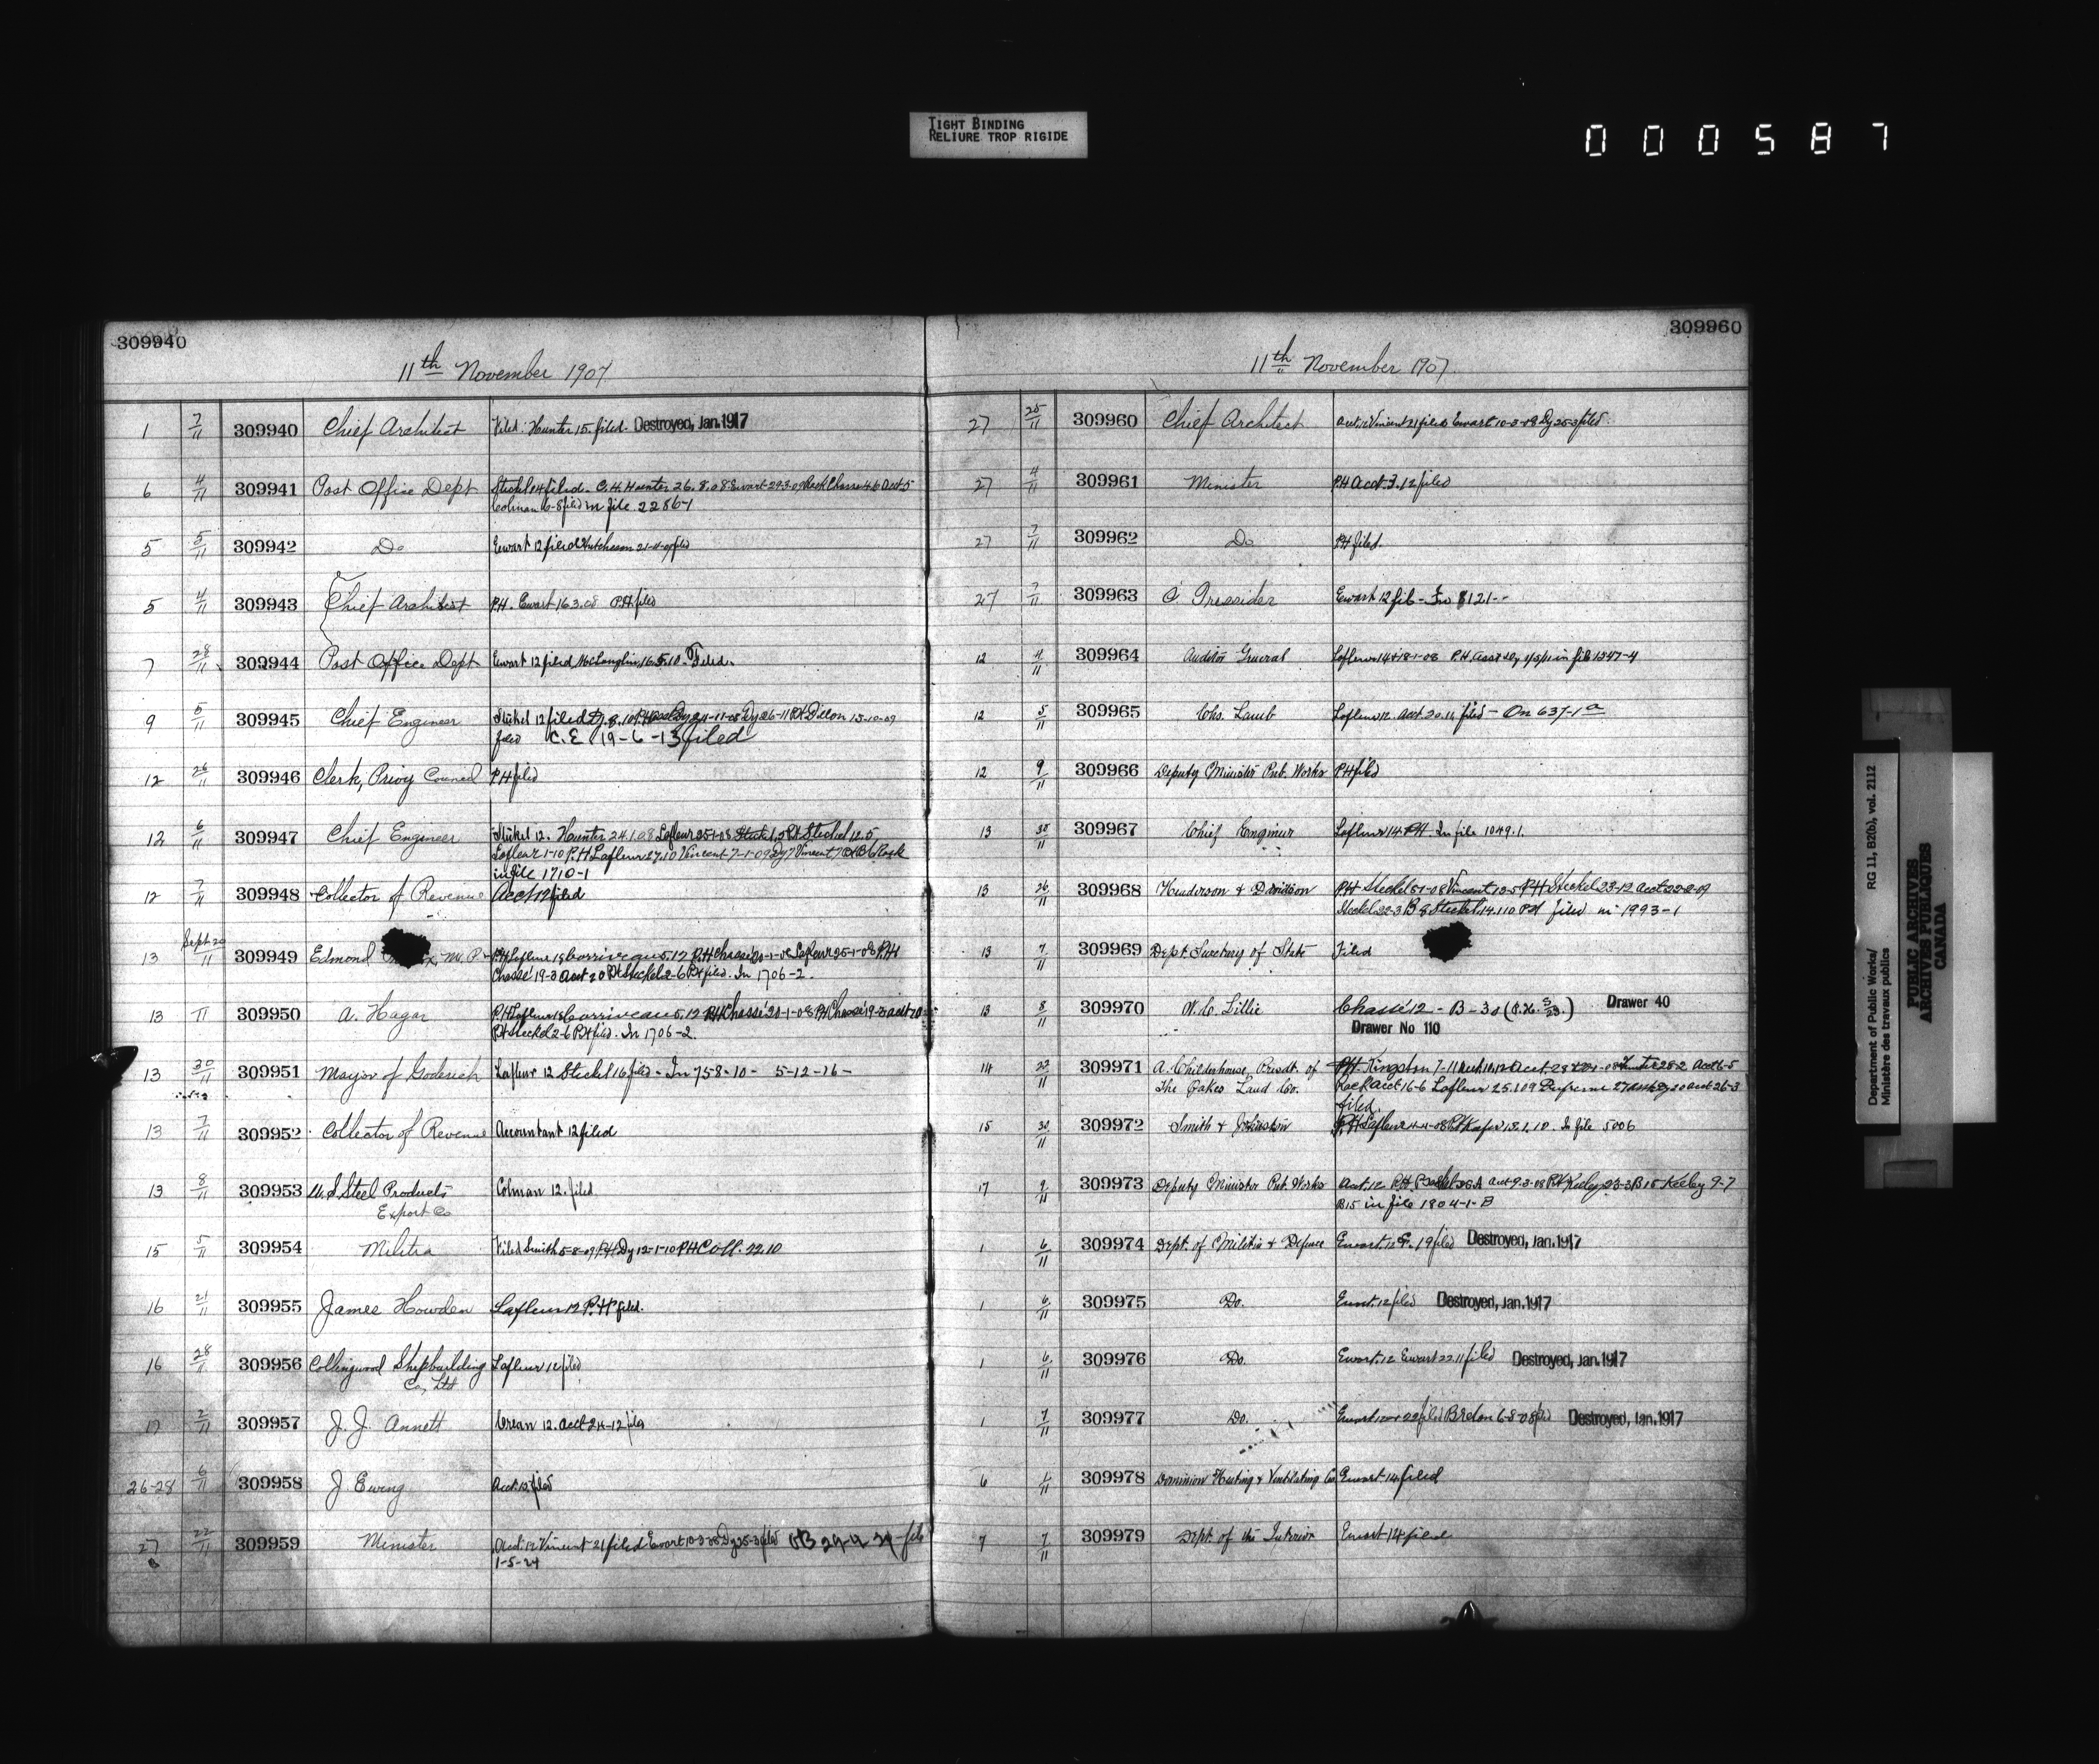 TIGHT BINDING
RELIURE TROP RIGIDE
000587
309940
11th November 1907
1 7/11 309940 Chief Architect Filed. Hunter 15. filed. Destroyed, Jan. 1917
6 4/11 309941 Post Office Dept Steckel 14 filed. C.H. Hunter 26.8.08 Ewart 29.3.09 Rock Chasse 4.6 Acct. 5
Colman 6-8 filed in file 2286-1
5 5/11 309942 Do Ewart 12 filed Hutcheson filed
5 4/11 309943 Chief Architect P.H. Ewart 16.3.08 P.H. filed
7 28/11 309944 Post Office Dept Ewart 12 filed McLaughlin 16.5.10. Filed.
9 5/11 309945 Chief Engineer Stekel 12 filed 24-11-08 Dy 26-11 P.H. Dillon 13-10-09
filed C.E. 19-6-13 filed
12 26/11 309946 Clerk, Privy Council P.H. filed
12 6/11 309947 Chief Engineer Stekel 12. Hunter 24.1.08 Lafleur 25-1-08 Steckel 12.5
Lafleur 1-10 P.H. Lafleur 27.10 Vincent 7-1-09 Dy 7 Vincent Rock
in file 1710-1
12 7/11 309948 Collector of Revenue Acct 12 filed
13 Sept 20/11 309949 Edmond M.P. P.H. Lafleur 18 Corriveau 5.12 P.H. Chassé 20-1-08 Lafleur 25-1-08 P.H.
Chassé 19-3 Acct 20 P.H. Steckel 2-6 P.H. filed. In 1706-2.
13 11 309950 A. Hagar P.H. Lafleur 18 Corriveau 5.12 P.H. Chassé 20-1-08 P.H. Chassé 19-3 acct 20
P.H. Steckel 2-6 P.H. filed. In 1706-2.
13 30/11 309951 Mayor of Goderich Lafleur 12 Steckel 16 filed - In 758-10 - 5-12-16 -
13 7/11 309952 Collector of Revenue Accountant 12 filed
13 8/11 309953 U.S. Steel Products Colman 12. filed
Export Co
15 5/11 309954 Militia Filed Smith 5-8-09 P.H. Dy 12-1-10 P.H. Coll. 22.10
16 21/11 309955 James Howden Lafleur 12 P.H. filed.
16 28/11 309956 Collingwood Shipbuilding Lafleur 12 filed
Co, Ltd
17 2/11 309957 J. J. Annett Crean 12. Acct 24-12 filed
26-28 6/11 309958 J Ewing Acct. 12. filed
27 22/11 309959 Minister Acct. 12 Vincent 21 filed Ewart 10-3-08 Dy 25-3 filed 29-9 file
1-5-24
309960
11th November 1907
27 25/11 309960 Chief Architect Acct. 12 Vincent 21 filed Ewart 10-3-08 Dy 25-3 filed.
27 4/11 309961 Minister P.H. Acct. 3.12 filed
27 7/11 309962 Do P.H. filed.
27 7/11 309963 C. Ewart 12 file - In 8121--
12 11/11 309964 Auditor General Lafleur 14 & 18-1-08 P.H. in file 1347-4
12 5/11 309965 Chs. Lamb Lafleur 12. Acct 20.11 filed - On 637-1a
12 9/11 309966 Deputy Minister Pub. Works P.H. filed
13 30/11 309967 Chief Engineer Lafleur 14. P.H. In file 1049.1.
13 26/11 309968 Henderson & Davidson P.H. Steckel 8-1-08 Vincent 12-5 P.H. Steckel 23-12 Acct 22-2-09
Steckel 22-3 B 8 Steckel 14.1.10 P.H. filed in 1993-1
13 7/11 309969 Dept. Secretary of State Filed
13 8/11 309970 W. C. Lillie Chassé 12 - B-30 Drawer 40
Drawer No 110
14 22/11 309971 A. Childerhouse, Presdt. of P.H. Kingston 7-11 Hunter 28-2 Acct 6-5
The Oakes Land Co. Rock Acct 16-6 Lafleur 25.1.09 Dufresne acct 26-3
filed.
15 30/11 309972 Smith & Johnston P.H. Lafleur 4-4-08 13.1.10. In file 5006
17 9/11 309973 Deputy Minister Pub Works Acct. 12 P.H. acct 9-3-08 P.H. Keeley 23-3 B 15 Keeley 9-7
B15 in file 1804-1-B
1 6/11 309974 Dept. of Militia & Defence Ewart. 12 19 filed Destroyed, Jan. 1917
1 6/11 309975 Do. Ewart. 12 filed Destroyed, Jan. 1917
1 6/11 309976 Do. Ewart. 12 Ewart 22.11 filed Destroyed, Jan. 1917
1 7/11 309977 Do. Ewart 22 filed Breton 6-8-08 filed Destroyed, Jan. 1917
6 1/11 309978 Dominion Heating & Ventilating Co Ewart 14 filed
7 7/11 309979 Dept. of the Interior Ewart 14 filed
Department of Public Works/ RG 11, B2(b), vol. 2112
Ministère des travaux publics
PUBLIC ARCHIVES
ARCHIVES PUBLIQUES
CANADA